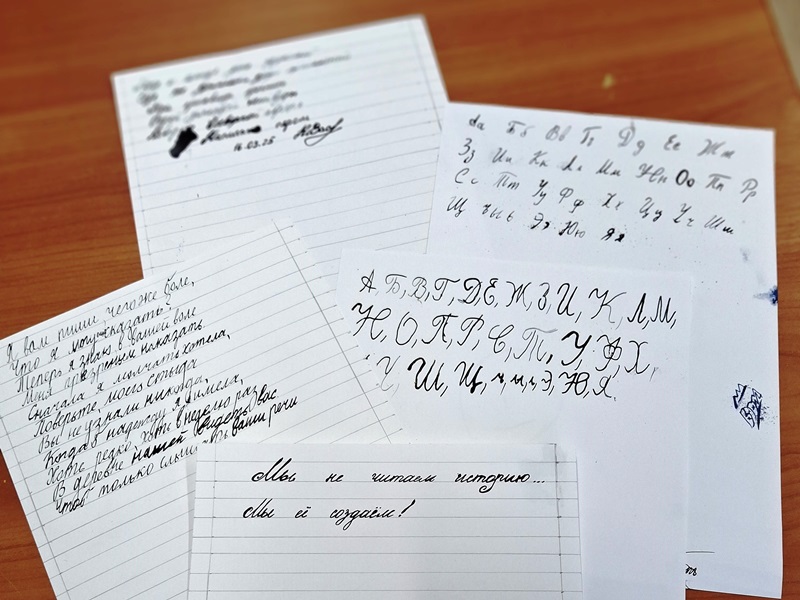 14.03.25
Аа Бб Вв Гг Дд Ее Жж
Зз Ии Кк Лл Мм Нн Оо Пп Рр
Сс Тт Уу Фф Хх Цц Чч Шш
Щ ъ ы ь Ээ Юю Яя
А, Б, В, Г, Д, Е, Ж, З, И, К, Л, М,
Н, О, П, Р, С, Т, У, Ф, Х,
Ч, Ш, Щ, ъ, ы, ь, Э, Ю, Я.
Я вам пишу, чего же боле,
Что я могу сказать?
Теперь я знаю в вашей воле
Меня презреньем наказать
Сначала я молчать хотела,
Поверьте, моего стыда
Вы не узнали никогда,
Когда б надежду я имела,
Хоть редко, хоть в неделю раз
В деревне нашей видеть вас
Чтоб только слышать ваши речи
Мы не читаем историю...
Мы её создаём!